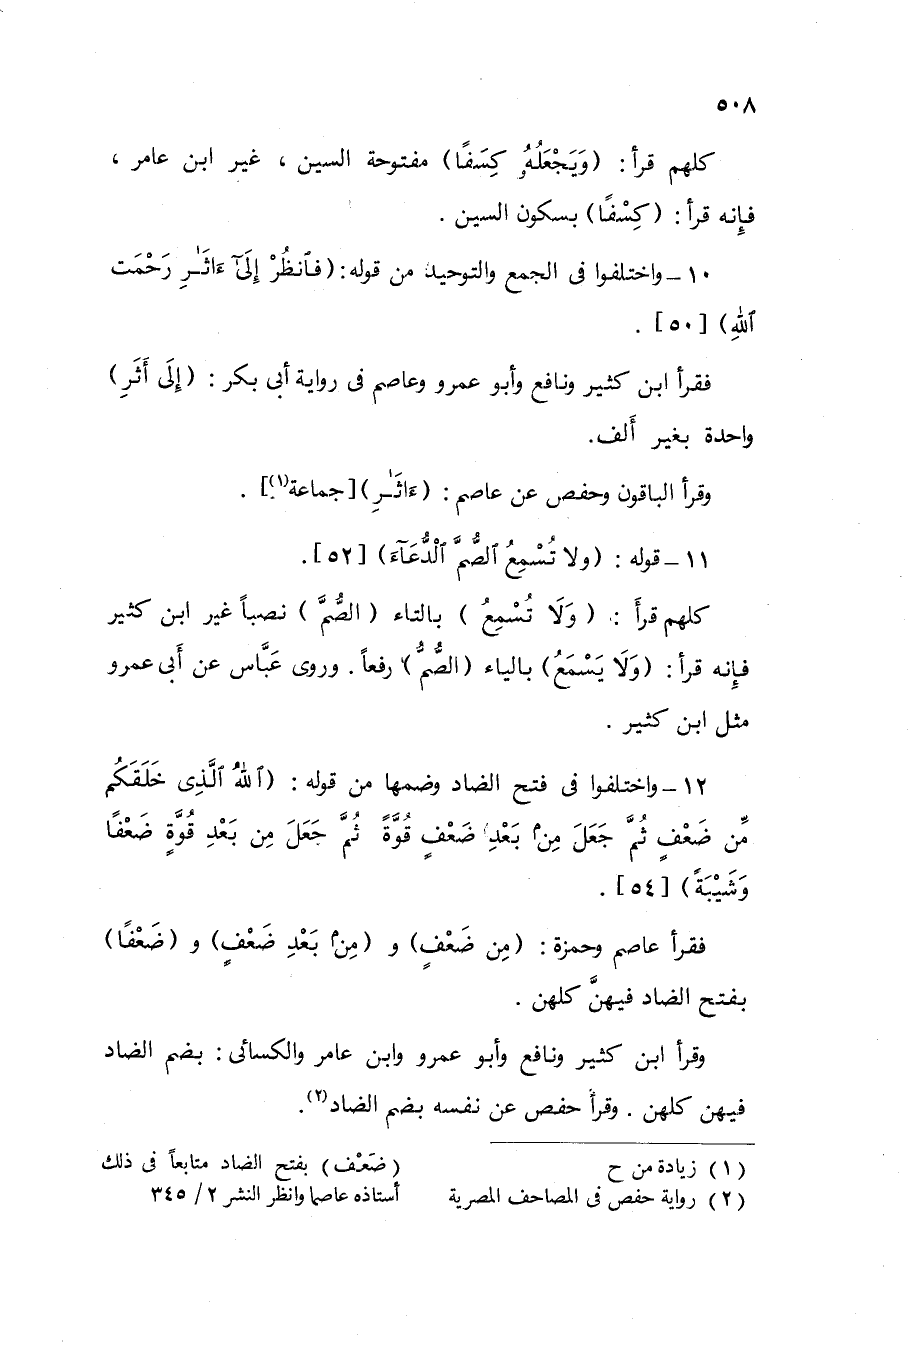 ٥٠٨
كلهم قرأ : (وَيَجْعَلُهُۥ كِسَفًا) مفتوحة السين ، غير ابن عامر ،
فإنه قرأ : (كِسْفًا) بسكون السين .
١٠ – واختلفوا فى الجمع والتوحيد من قوله : (فَٱنظُرْ إِلَىٰٓ ءَاثَـٰرِ رَحْمَت
ٱللهِ) [٥٠] .
فقرأ ابن كثير ونافع وأبو عمرو وعاصم فى رواية أبى بكر : (إِلَى أَثَرِ)
واحدة بغير أَلف.
وقرأ الباقون وحفص عن عاصم : (ءَاثَـٰرِ) [جماعة(١)] .
١١ – قوله : (ولا تُسْمِعُ ٱلصُّمَّ ٱلْدُّعَآءَ) [٥٢] .
كلهم قرأَ : (وَلَا تُسْمِعُ) بالتاء (الصُّمَّ) نصباً غير ابن كثير
فإنه قرأ : (وَلَا يَسْمَعُ) بالياء (الصُّمُّ) رفعاً . وروى عَبَّاس عن أَبى عمرو
مثل ابن كثير .
١٢ – واختلفوا فى فتح الضاد وضمها من قوله : (ٱللهُ ٱلَّذِى خَلَقَكُم
مِّن ضَعْفٍ ثُمَّ جَعَلَ مِنۢ بَعْدِ ضَعْفٍ قُوَّةً ثُمَّ جَعَلَ مِن بَعْدِ قُوَّةٍ ضَعْفًا
وَشَيْبَةً) [٥٤] .
فقرأ عاصم وحمزة : (مِن ضَعْفٍ) و (مِنۢ بَعْدِ ضَعْفٍ) و (ضَعْفًا)
بفتح الضاد فيهنَّ كلهن .
وقرأ ابن كثير ونافع وأبو عمرو وابن عامر والكسائى : بضم الضاد
فيهن كلهن . وقرأ حفص عن نفسه بضم الضاد(٢).
(١) زيادة من ح
(٢) رواية حفص فى المصاحف المصرية
(ضَعْف) بفتح الضاد متابعاً فى ذلك
أستاذه عاصما وانظر النشر ٢ / ٣٤٥